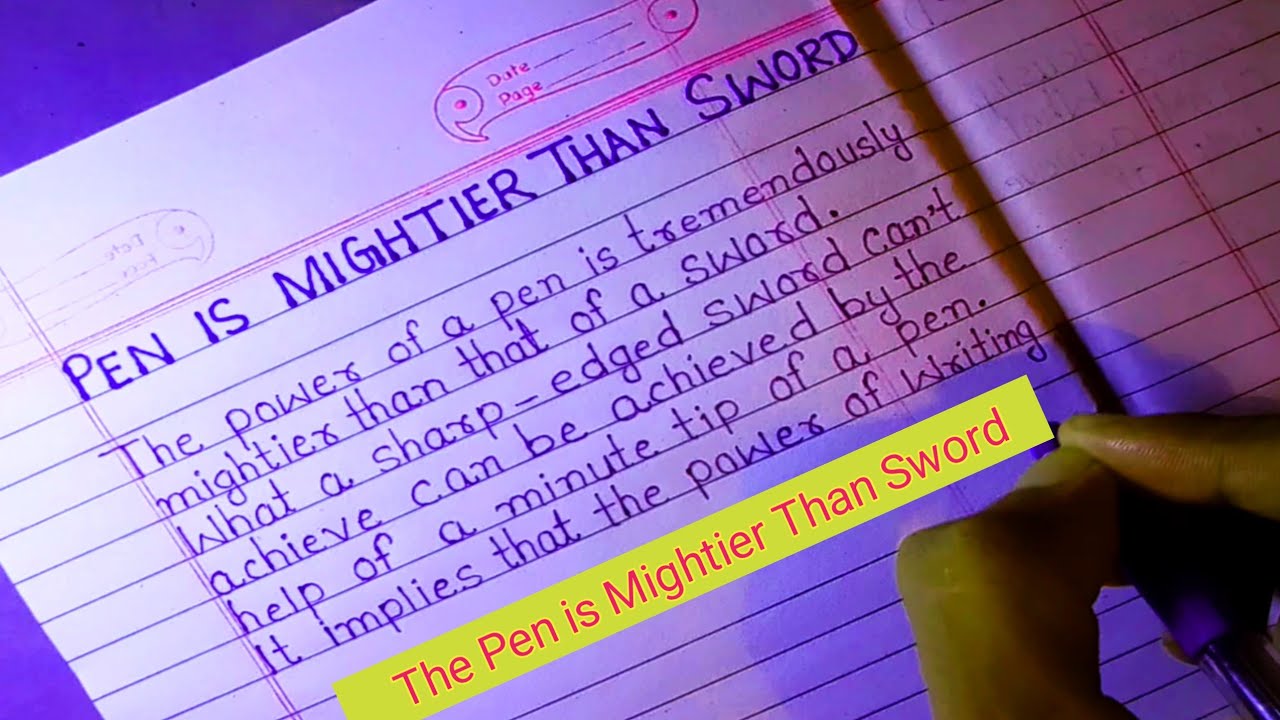 Date
Page
PEN IS MIGHTIER THAN SWORD
The power of a pen is tremendously
mightier than that of a sword.
What a sharp-edged sword can't
achieve can be achieved by the
help of a minute tip of a pen.
It implies that the power of writing
The Pen is Mightier Than Sword